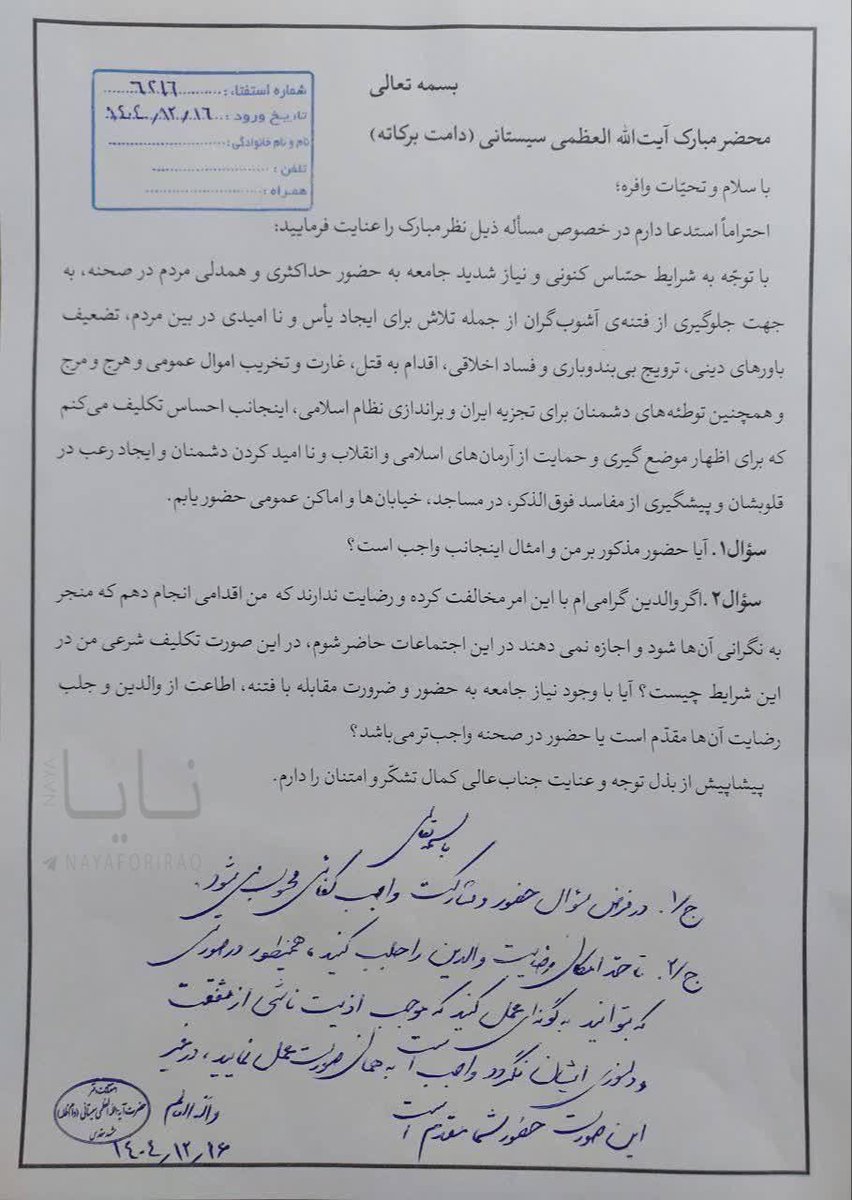 شماره استفتاء: ۶۲۱۶
تاریخ ورود: ۱۴۰۴/۱۲/۱۶
نام و نام خانوادگی:
تلفن:
همراه:
بسمه تعالی
محضر مبارک آیت‌الله العظمی سیستانی (دامت برکاته)
با سلام و تحیّات وافره؛
احتراماً استدعا دارم در خصوص مسأله ذیل نظر مبارک را عنایت فرمایید:
با توجّه به شرایط حسّاس کنونی و نیاز شدید جامعه به حضور حداکثری و همدلی مردم در صحنه، به
جهت جلوگیری از فتنه‌ی آشوب‌گران از جمله تلاش برای ایجاد یأس و نا امیدی در بین مردم، تضعیف
باورهای دینی، ترویج بی‌بندوباری و فساد اخلاقی، اقدام به قتل، غارت و تخریب اموال عمومی و هرج و مرج
و همچنین توطئه‌های دشمنان برای تجزیه ایران و براندازی نظام اسلامی، اینجانب احساس تکلیف می‌کنم
که برای اظهار موضع گیری و حمایت از آرمان‌های اسلامی و انقلاب و نا امید کردن دشمنان و ایجاد رعب در
قلوبشان و پیشگیری از مفاسد فوق‌الذکر، در مساجد، خیابان‌ها و اماکن عمومی حضور یابم.
سؤال۱. آیا حضور مذکور بر من و امثال اینجانب واجب است؟
سؤال۲. اگر والدین گرامی‌ام با این امر مخالفت کرده و رضایت ندارند که من اقدامی انجام دهم که منجر
به نگرانی آن‌ها شود و اجازه نمی دهند در این اجتماعات حاضر شوم، در این صورت تکلیف شرعی من در
این شرایط چیست؟ آیا با وجود نیاز جامعه به حضور و ضرورت مقابله با فتنه، اطاعت از والدین و جلب
رضایت آن‌ها مقدّم است یا حضور در صحنه واجب‌تر می‌باشد؟
پیشاپیش از بذل توجه و عنایت جناب‌عالی کمال تشکّر و امتنان را دارم.
نایا
NAYA
NAYAFORIRAQ
باسمه تعالی
ج/۱. در فرض سؤال حضور و مشارکت واجب کفائی محسوب می‌شود.
ج/۲. تا حدّ امکان رضایت والدین را جلب کنید، همینطور در صورتی
که بتوانید به گونه‌ای عمل کنید که موجب اذیت ناشی از شفقت
و دلسوزی ایشان نگردد واجب است به همان صورت عمل نمایید، در غیر
این صورت حضور شما مقدم است
والله العالم
حضرت آیة الله العظمی سیستانی
۱۴۰۴/۱۲/۱۶